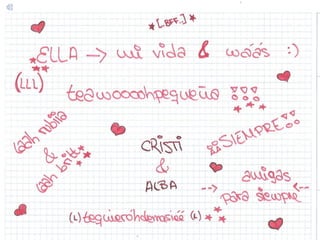 *[BFF.]*
ELLA → mi vida & wáás :)
(LLL)
teawoooohpequeña
laah rubiia
&
laah britt
CRISTI
&
ALBA
¡¡SIEMPRE!!
amigas
--> para siempre <--
(L) tequierohdemasieé (L)